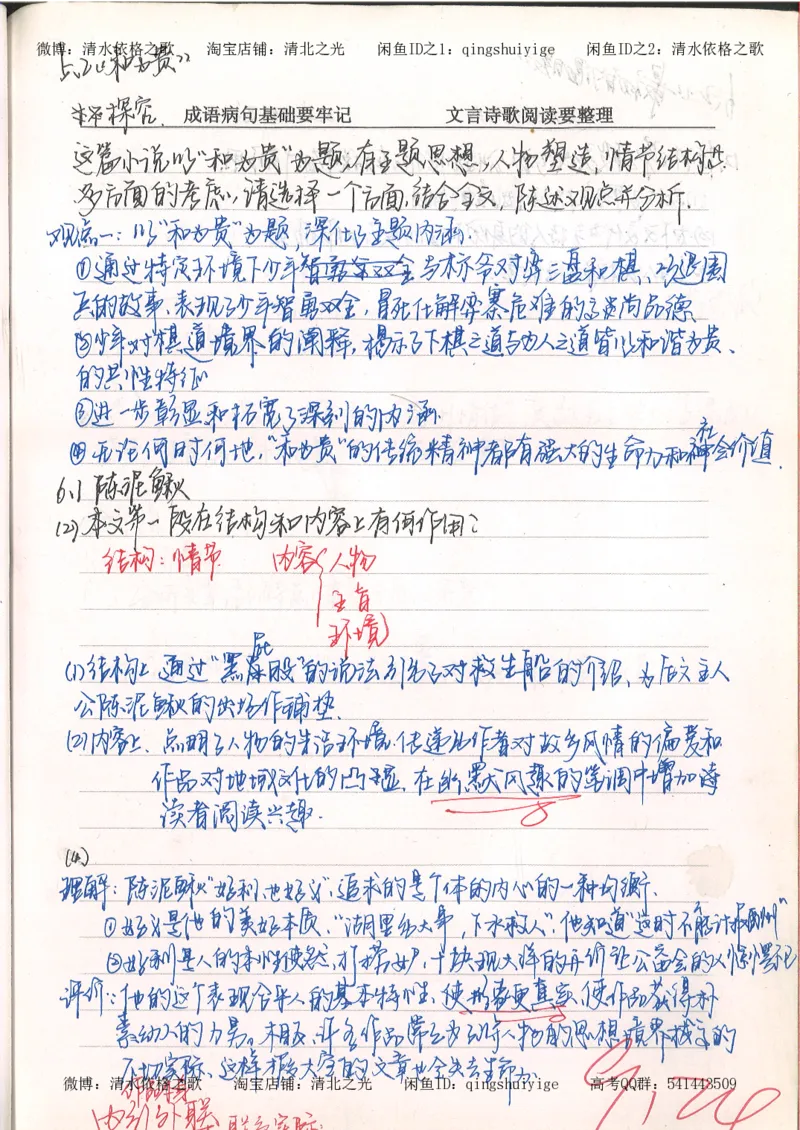 微博：清水依格之歌 淘宝店铺：清北之光 闲鱼ID之1：qingshuiyige 闲鱼ID之2：清水依格之歌
5.2《和为贵》
探究 成语病句基础要牢记 文言诗歌阅读要整理
这篇小说以“和为贵”为题，有主题思想，人物塑造，情节结构等
多方面的考虑，请选择一个方面，结合全文，陈述观点并分析.
观点一：以“和为贵”为题，深化了主题内涵.
①通过特定环境下少年 与 爷对弈三盘和棋，巧退围
兵的故事，表现了少年智勇双全，冒死化解梁寨危难的高尚品德
②少年对棋道境界的阐释，揭示了下棋之道与为人之道皆以和谐为贵、
的共性特征
③进一步彰显和拓宽了深刻的内涵.
④无论何时何地，“和为贵”的传统精神都有强大的生命力和社会价值.
6.1 陈泥鳅
(2)本文第一段在结构和内容上有何作用？
结构：情节 内容 人物
主旨
环境
(1)结构上 通过“黑屁股”的说法引出了对救生船的介绍，为后文主人
公陈泥鳅的出场作铺垫.
(2)内容上、点明了人物的生活环境.传递出作者对故乡风情的偏爱和
作品对地域文化的凸显，在幽默风趣的笔调中增加
读者阅读兴趣.
(4)
理解：陈泥鳅“好利，也好义”，追求的是个体的内心的一种均衡.
①好义是他的美好本质，“湖里 大事，下水救人”，他知道“这时不能计
②好利是人的本性使然，
评价：他的这个表现合乎人的基本特性，使形象更真实，使作品获得朴
素动人的力量。相反，许多作品常 人物的思想境界拔高的
不切实际，这样 的文章也会失去生命力
微博：清水依格之歌 淘宝店铺：清北之光 闲鱼ID：qingshuiyige 高考QQ群：541448509
内引外联 联系实际